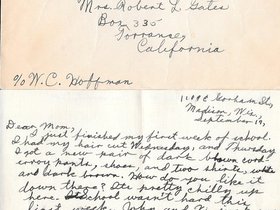 Mrs. Robert L. Gates
Box 330
Torrance,
California
c/o W.C. Hoffman
Gorham St.
Madison, Wis.
September 19,
Dear Mom,
I just finished my first week of school.
I had my hair cut Wednesday, and Thursday
I got a new pair of dark brown cord-
uroy pants, shoes, and two shirts, white
and dark brown. How do you like it
down there? Its pretty chilly up
here. School wasn't hard this
first week.